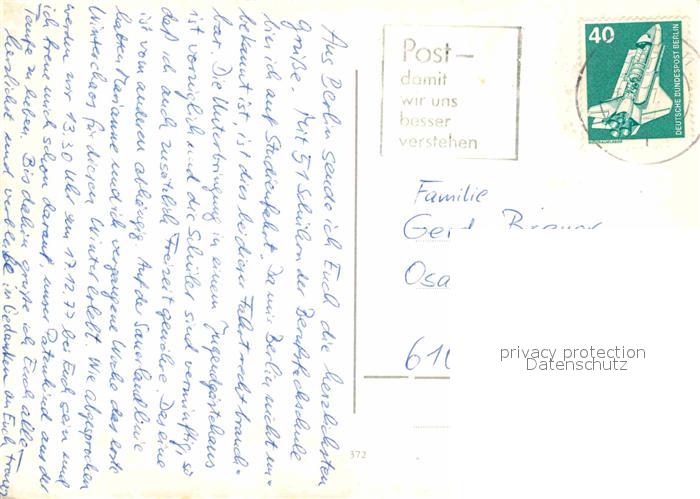 Aus Berlin sende ich Euch die herzlichsten
Grüße. Mit 51 Schülern der Berufsfachschule
bin ich auf Studienfahrt. Da mir Berlin nicht un-
bekannt ist, ist dies bei dieser Fahrt recht brauch-
bar. Die Unterbringung in einem Jugendgästehaus
ist vorzüglich und die Schüler sind vernünftig, so
daß ich auch zusätzlich Freizeit genieße. Das eine
ist vom andern abhängig. Auf der Sauerlandlinie
hatten Marianne und ich vergangene Woche das erste
Winterchaos für diesen Winter erlebt. Wie abgesprochen
werden wir 13.30 Uhr am 17.12.77 bei Euch sein und
ich freue mich schon darauf, unser Patenkind aus der
Taufe zu heben. Bis dahin grüße ich Euch alle
herzlichst und verbleibe in Gedanken an Euch Franz
Post-
damit
wir uns
besser
verstehen
40
DEUTSCHE BUNDESPOST BERLIN
Familie
Gerd
Osa
610
372
privacy protection
Datenschutz